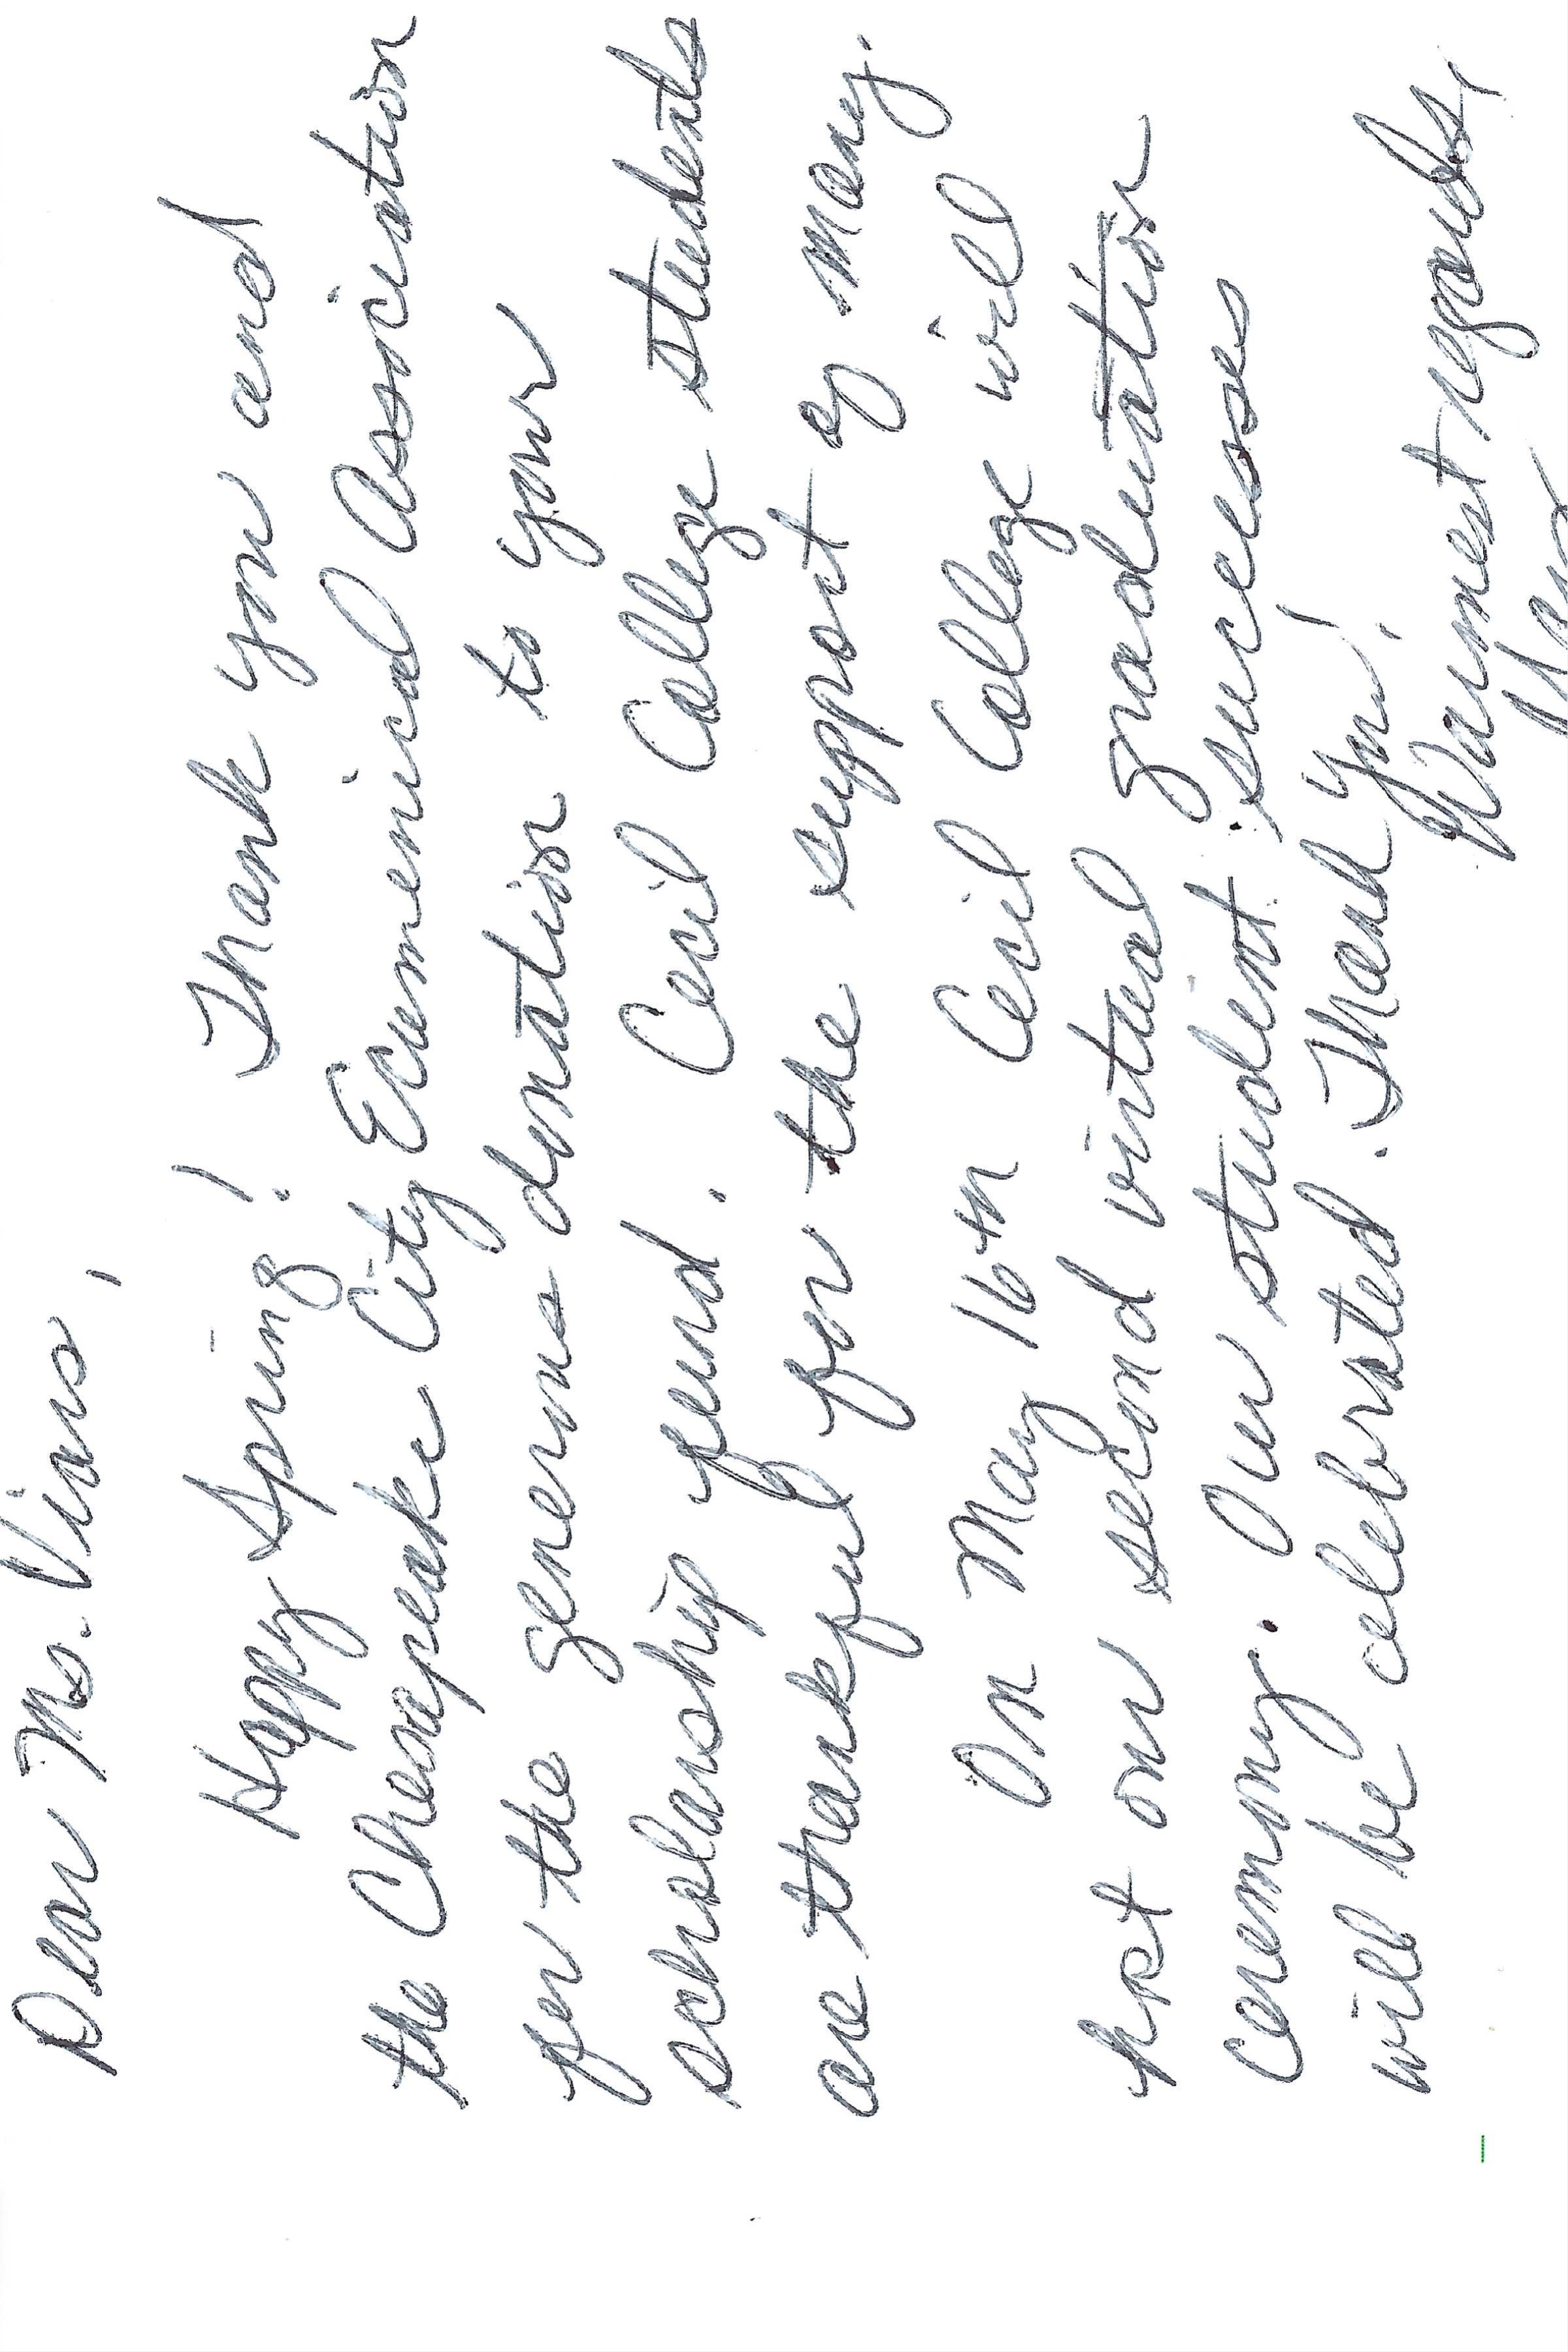 Dear Ms. Vians,
Happy Spring! Thank you and
the Chesapeake City Ecumenical Association
for the generous donation to your
scholarship fund. Cecil College students
are thankful for the support of many.
On May 16th Cecil College will
host our second virtual graduation
ceremony. Our student successes
will be celebrated. Thank you!
Warmest regards,